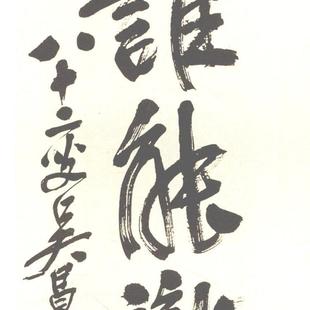 誰能
八十二叟吳昌